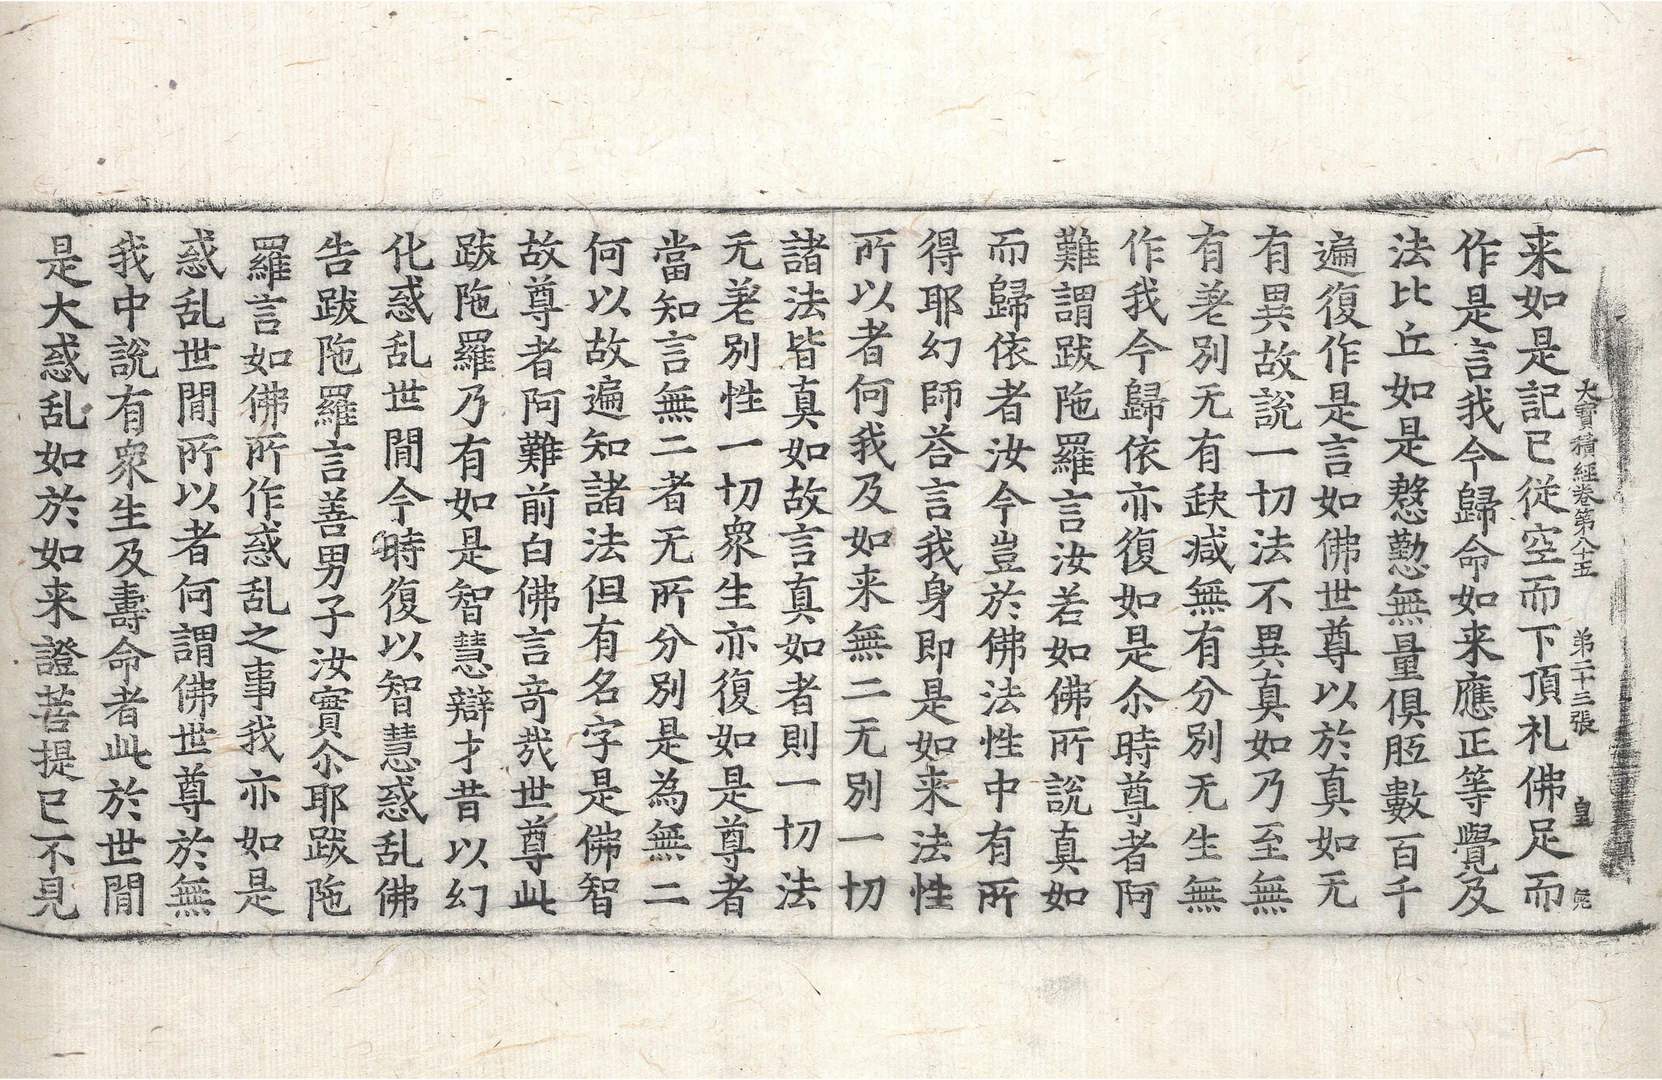 大寶積經卷第八十五 第二十三張 皇
来如是記已從空而下頂礼佛足而
作是言我今歸命如来應正等覺及
法比丘如是慇懃無量俱胝數百千
遍復作是言如佛世尊以於真如无
有異故說一切法不異真如乃至無
有差別无有缺减無有分別无生無
作我今歸依亦復如是尒時尊者阿
難謂跋陁羅言汝若如佛所說真如
而歸依者汝今豈於佛法性中有所
得耶幻師荅言我身即是如来法性
所以者何我及如来無二无別一切
諸法皆真如故言真如者則一切法
无差別性一切衆生亦復如是尊者
當知言無二者无所分別是為無二
何以故遍知諸法但有名字是佛智
故尊者阿難前白佛言竒㢤世尊此
跋陁羅乃有如是智慧辯才昔以幻
化惑乱世間今時復以智慧惑乱佛
告跋陁羅言善男子汝實尒耶跋陁
羅言如佛所作惑乱之事我亦如是
惑乱世間所以者何謂佛世尊於無
我中說有衆生及壽命者此於世間
是大惑乱如於如来證菩提已不見